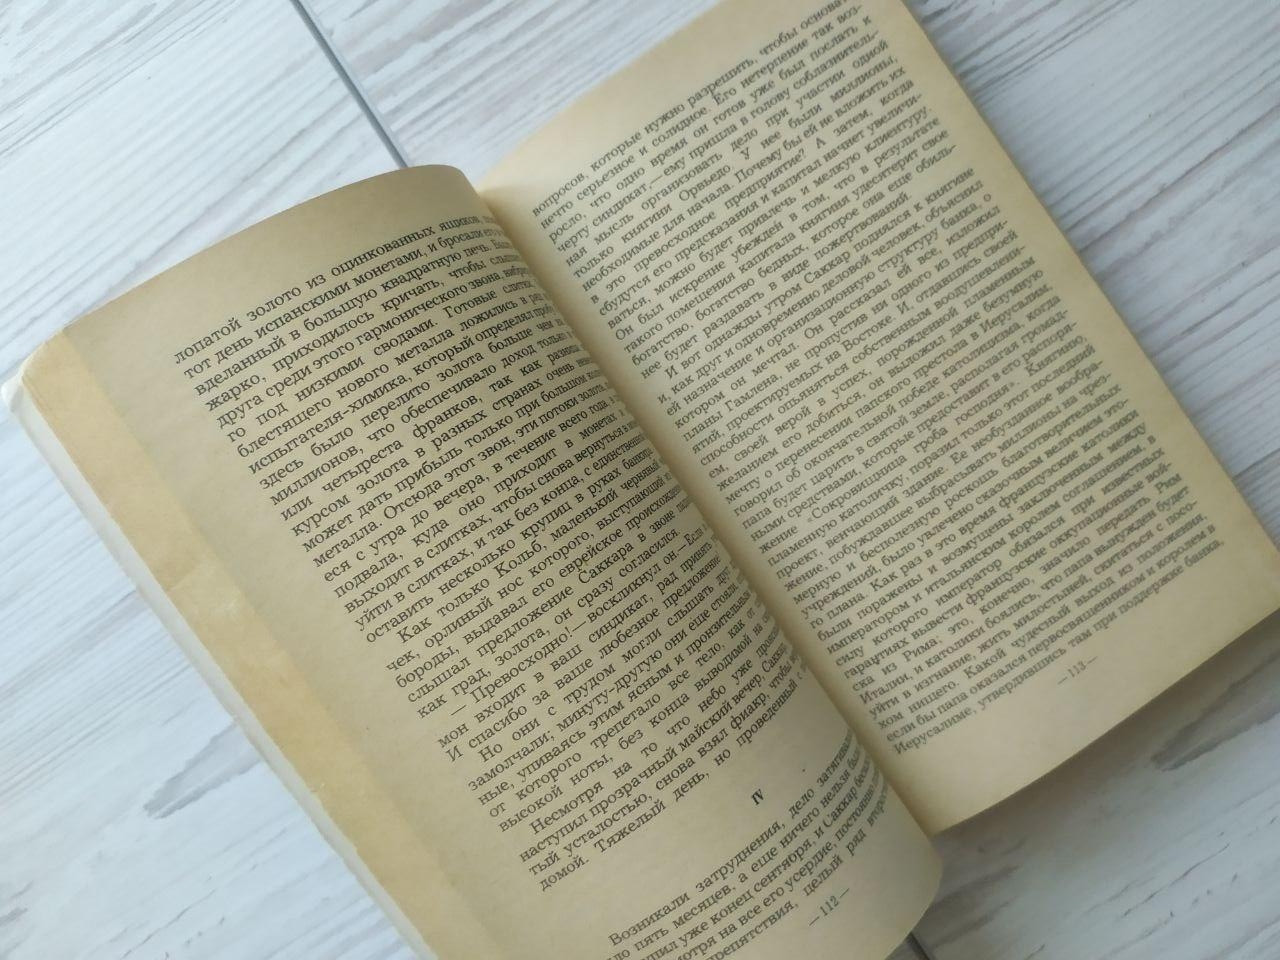 лопатой золото из оцинкованных ящиков,
тот день испанскими монетами, и бросали его
вделанный в большую квадратную печь.
жарко, приходилось кричать, чтобы
друга среди этого гармонического звона,
го под низкими сводами. Готовые слитки,
блестящего нового металла ложились в ряд
испытателя-химика, который определял
здесь было перелито золота больше чем
миллионов, что обеспечивало доход только в
или четыреста франков, так как разница
курсом золота в разных странах очень
может дать прибыль только при большом
металла. Отсюда этот звон, эти потоки золота
еся с утра до вечера, в течение всего года, в
подвала, куда оно приходит в монетах и
выходит в слитках, чтобы снова вернуться в
уйти в слитках, и так без конца, с единственной
оставить несколько крупиц в руках
Как только Кольб, маленький чернявый
чек, орлиный нос которого, выступающий из
бороды, выдавал его еврейское происхождение
слышал предложение Саккара в звоне
как град, золота, он сразу согласился
— Превосходно!— воскликнул он.— Если
мон входит в ваш синдикат, рад принять
И спасибо за ваше любезное предложение
Но они с трудом могли слышать друг
замолчали; минуту-другую они еще стояли
ные, упиваясь этим ясным и пронзительным
от которого трепетало все тело, как от
высокой ноты, без конца выводимой на
Несмотря на то что небо уже
наступил прозрачный майский вечер, Саккар,
тый усталостью, снова взял фиакр, чтобы
домой. Тяжелый день, но проведенный с
IV
Возникали затруднения, дело
ло пять месяцев, а еще ничего нельзя
пил уже конец сентября, и Саккар
мотря на все его усердие, постоянно
препятствия, целый ряд
—112—
вопросов, которые нужно разрешить, чтобы основать
нечто серьезное и солидное. Его нетерпение так воз-
росло, что одно время он готов уже был послать к
черту синдикат,— ему пришла в голову соблазнитель-
ная мысль организовать дело при участии одной
только княгини Орвьедо. У нее были миллионы,
необходимые для начала. Почему бы ей не вложить их
в это превосходное предприятие? А затем, когда
сбудутся его предсказания и капитал начнет увеличи-
ваться, можно будет привлечь и мелкую клиентуру.
Он был искренне убежден в том, что в результате
такого помещения капитала княгиня удесятерит свое
богатство, богатство бедных, которое она еще обиль-
нее будет раздавать в виде пожертвований.
И вот однажды утром Саккар поднялся к княгине
и, как друг и одновременно деловой человек, объяснил
ей назначение и организационную структуру банка, о
котором он мечтал. Он рассказал ей все, изложил
планы Гамлена, не пропустив ни одного из предпри-
ятий, проектируемых на Востоке. И, отдавшись своей
способности опьяняться собственным воодушевлени-
ем, своей верой в успех, порожденной пламенным
желанием его добиться, он выложил даже безумную
мечту о перенесении папского престола в Иерусалим,
говорил об окончательной победе католицизма, когда
папа будет царить в святой земле, располагая громад-
ными средствами, которые предоставит в его распоря-
жение «Сокровищница гроба господня». Княгиню,
пламенную католичку, поразил только этот последний
проект, венчающий здание. Ее необузданное вообра-
жение, побуждавшее выбрасывать миллионы на чрез-
мерную и бесполезную роскошь благотворительных
учреждений, было увлечено сказочным величием это-
го плана. Как раз в это время французские католики
были поражены и возмущены заключенным между
императором и итальянским королем соглашением, в
силу которого император обязался при известных
гарантиях вывести французские оккупационные вой-
ска из Рима; это, конечно, значило передать Рим
Италии, и католики боялись, что папа вынужден будет
уйти в изгнание, жить милостыней, скитаться с посо-
хом нищего. Какой чудесный выход из положения,
если бы папа оказался первосвященником и королем в
Иерусалиме, утвердившись там при поддержке банка,
—113—